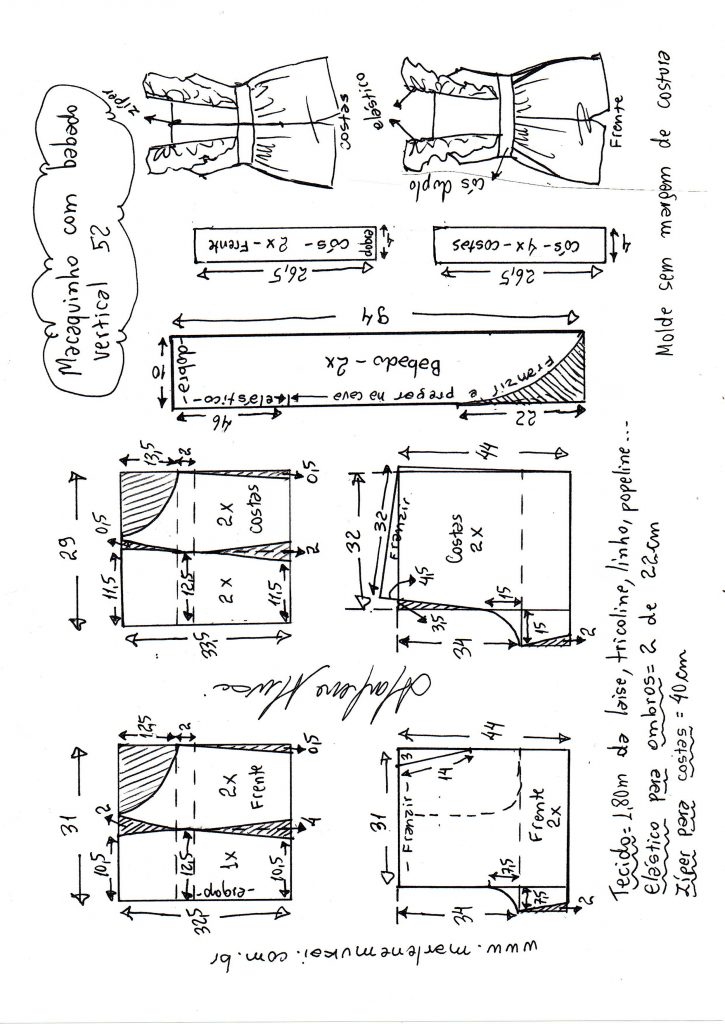 Macaquinho com babado
vertical 52
zíper
costas
elástico
cós duplo
Frente
cós - 2x - Frente
dobra
4
26,5
cós - 4x - costas
4
26,5
Molde sem margem de costura
94
10
- dobra -
Babado - 2x
Franzir e pregar na cava
- elástico -
46
22
29
13,5
2
0,5
11,5
12,5
2x
2x
costas
11,5
2
0,5
33,5
44
32
32
Franzir
Costas
2x
4,5
3,5
34
15
15
2
31
12,5
2
2
10,5
12,5
1x
2x
Frente
- dobra -
10,5
4
0,5
32,5
44
31
- Franzir -
3
14
Frente
2x
34
7,5
7,5
2
Tecido = 1,80m da laise, tricoline, linho, popeline...
Elástico para ombros = 2 de 22cm
Zíper para costas = 40cm
www.marlenemukai.com.br
Marlene Mukai